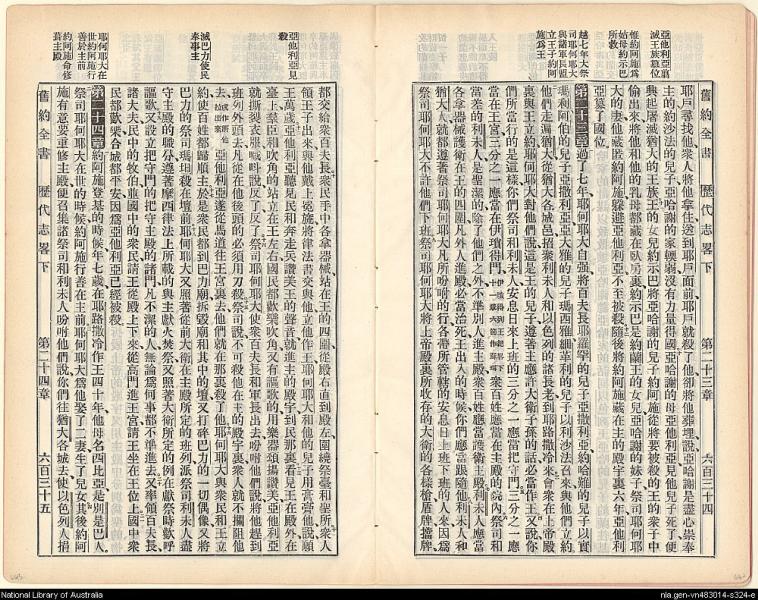 亞他利亞翦
滅王族篡位
惟約阿施爲
姑母約示巴
所救
越七年大祭
司耶何耶大
與諸軍長盟
立王子約阿
施爲王
舊約全書 歷代志畧下 第二十三章 六百三十四
耶戶尋找他衆人將他拿住送到耶戶面前耶戶就殺了他卻將他葬埋說亞哈謝是盡心崇奉
主的約沙法的兒子亞哈謝的家衰弱沒有力量得國亞哈謝的母亞他利亞見他兒子死了便
典起屠滅猶大的王族王的女兒約示巴將亞哈謝的兒子約阿施從將要被殺的王的衆子中
偷出來將他和他的乳母都藏在臥房裏約示巴是約蘭王的女兒亞哈謝的妹子祭司耶何耶
大的妻他藏匿約阿施躲避亞他利亞不至被殺隨後將約阿施藏在主的殿宇裏六年亞他利
亞篡了國位
第二十三章過了七年耶何耶大自強將百夫長耶羅罕的兒子亞撒利亞約哈難的兒子以實
瑪利阿伯的兒子亞撒利亞亞大雅的兒子瑪西雅細革利的兒子以利沙法召來與他們立約
他們走遍猶大從猶大各城邑招衆利未人和以色列的諸長老到耶路撒冷來會衆在上帝殿
裏與王立約耶何耶大對他們說這是王的兒子遵著主應許大衛子孫的話必當作王又說你
們所當行的是這樣你們祭司和利未人安息日來上班的三分之一應當把守門三分之一應
當在王宮三分之一應當在伊瑣得門衆百姓應當在主殿的院內祭司和
當差的利未人是聖潔的除了他們之外不準別人進主殿衆百姓應當護衛主殿利未人應當
各拿器械護衛在王的四圍凡外人進殿必當治死王出入的時候你們應當跟隨他利未人和
猶大人就都遵著祭司耶何耶大凡所吩咐的行各帶所管轄的安息日上班下班的人來因爲
祭司耶何耶大不許他們下班祭司耶何耶大將上帝殿裏所收存的大衛的各樣槍盾牌擋牌
亞他利亞見
殺
滅巴力使民
奉事主
耶何耶大在
世約阿施行
善於主前
約阿施命修
葺主殿
舊約全書 歷代志畧下 第二十四章 六百三十五
都交給衆百夫長衆民手中各拿器械站在王的四圍從殿右直到殿左圍繞祭臺和聖所衆人
領王子出來與他戴上冕旒將律法書交與他立他作王耶何耶大和他的兒子用膏膏他說願
王萬歲亞他利亞聽見民和奔走兵讚美王的聲音就進主的殿宇到民那裏看見王在殿外在
臺上羣臣和吹角的站立在王左右國民都歡樂吹角又有謳歌的用樂器頌揚讚美亞他利亞
就撕裂衣服喊叫說反了反了祭司耶何耶大便使衆百夫長和軍長出去吩咐他們說將他趕到
班列外頭去凡從在他後頭的必須用刀殺祭司說不可殺他在主的殿宇裏衆人就不攔阻他
去亞他利亞遂從馬道往王宮裏去他們就在那裏殺了他耶何耶大與衆民和王立
約使百姓都歸順主於是衆民都到巴力廟拆毀廟和其中的壇又打碎巴力的一切偶像又將
巴力的祭司瑪坦殺在壇前耶何耶大又照著從前大衛在主殿所定的班列派祭司利未人盡
守主殿的職分遵著摩西律法上所載的與主獻火焚祭又照著大衛所定的例在獻祭時歡呼
謳歌又設立把守門的把守主殿的諸門凡不潔的人無論爲何事都不準進去又率領百夫長
諸大夫民中的牧伯並國中的衆民請王從殿上下來從高門進王宮請王坐在王位上國中衆
民都歡樂合城都平安因爲亞他利亞已經被殺
第二十四章約阿施登基的時候年七歲在耶路撒冷作王四十年他母名西比亞是別是巴人
祭司耶何耶大在世的時候約阿施行善在主前耶何耶大爲他娶了二妻生了兒女其後約阿
施有意要重修主殿便召集諸祭司和利未人吩咐他們說你們往猶大各城去使以色列人捐
National Library of Australia
nla.gen-vn483014-s324-e